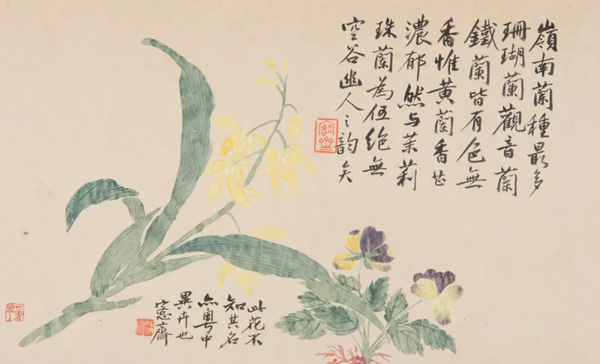 嶺南蘭種最多
珊瑚蘭觀音蘭
鐵蘭皆有色無
香惟黃蘭香甚
濃郁然与茉莉
珠蘭為伍絕無
空谷幽人之韵矣
此花不
知其名
亦粵中
異卉也
窓齋